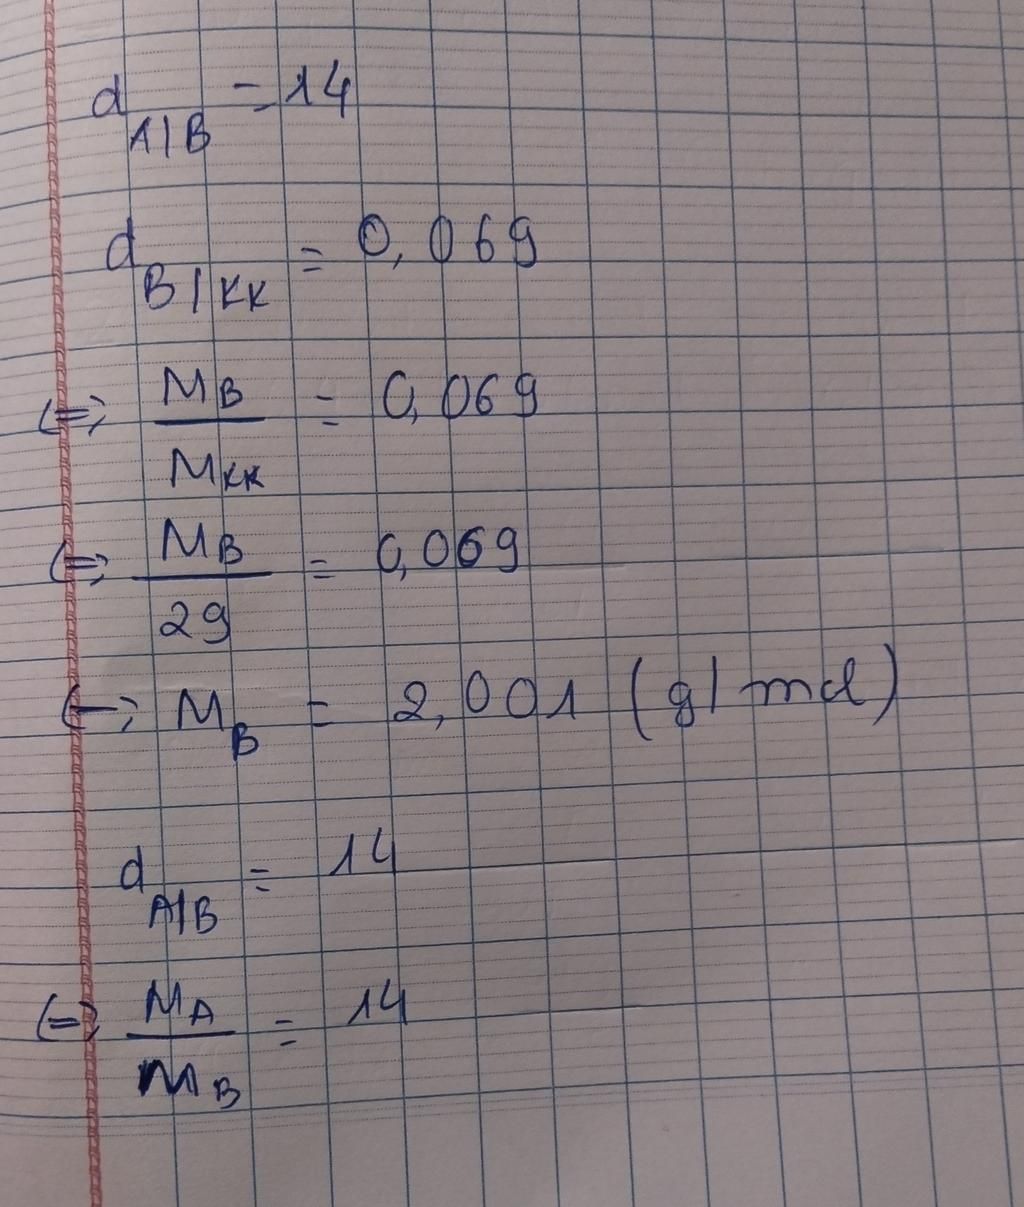 d A/B = 14
d B/KK = 0,069
<=> MB / MKK = 0,069
<=> MB / 29 = 0,069
<=> MB = 2,001 (g/mol)
d A/B = 14
<=> MA / MB = 14